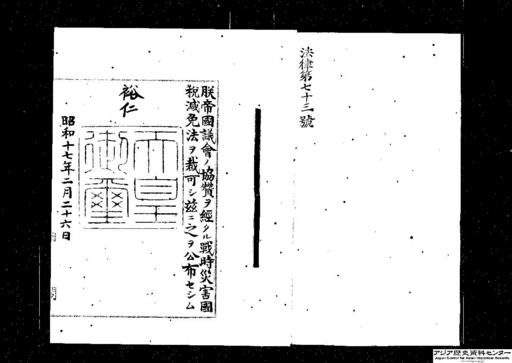 法律第七十三號
朕帝國議會ノ協賛ヲ經タル戰時災害國
稅減免法ヲ裁可シ茲ニ之ヲ公布セシム
裕仁
天皇
御璽
昭和十七年二月二十六日
アジア歴史資料センター
Japan Center for Asian Historical Records